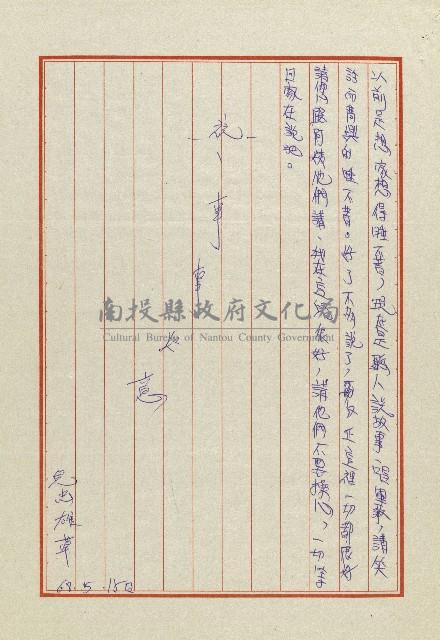 以前是想家想得睡不著,現在是聽人說故事、唱軍歌,請笑
話而高興的睡不著。好了不多說了,反正這裡一切都很好
請您跟阿姨他們講、我在這里很好,請他們不要操心,一切等
回家在說吧。
祝、事事如意
兒忠雄草
68.5.15日
南投縣政府文化局
Cultural Bureau of Nantou County Government